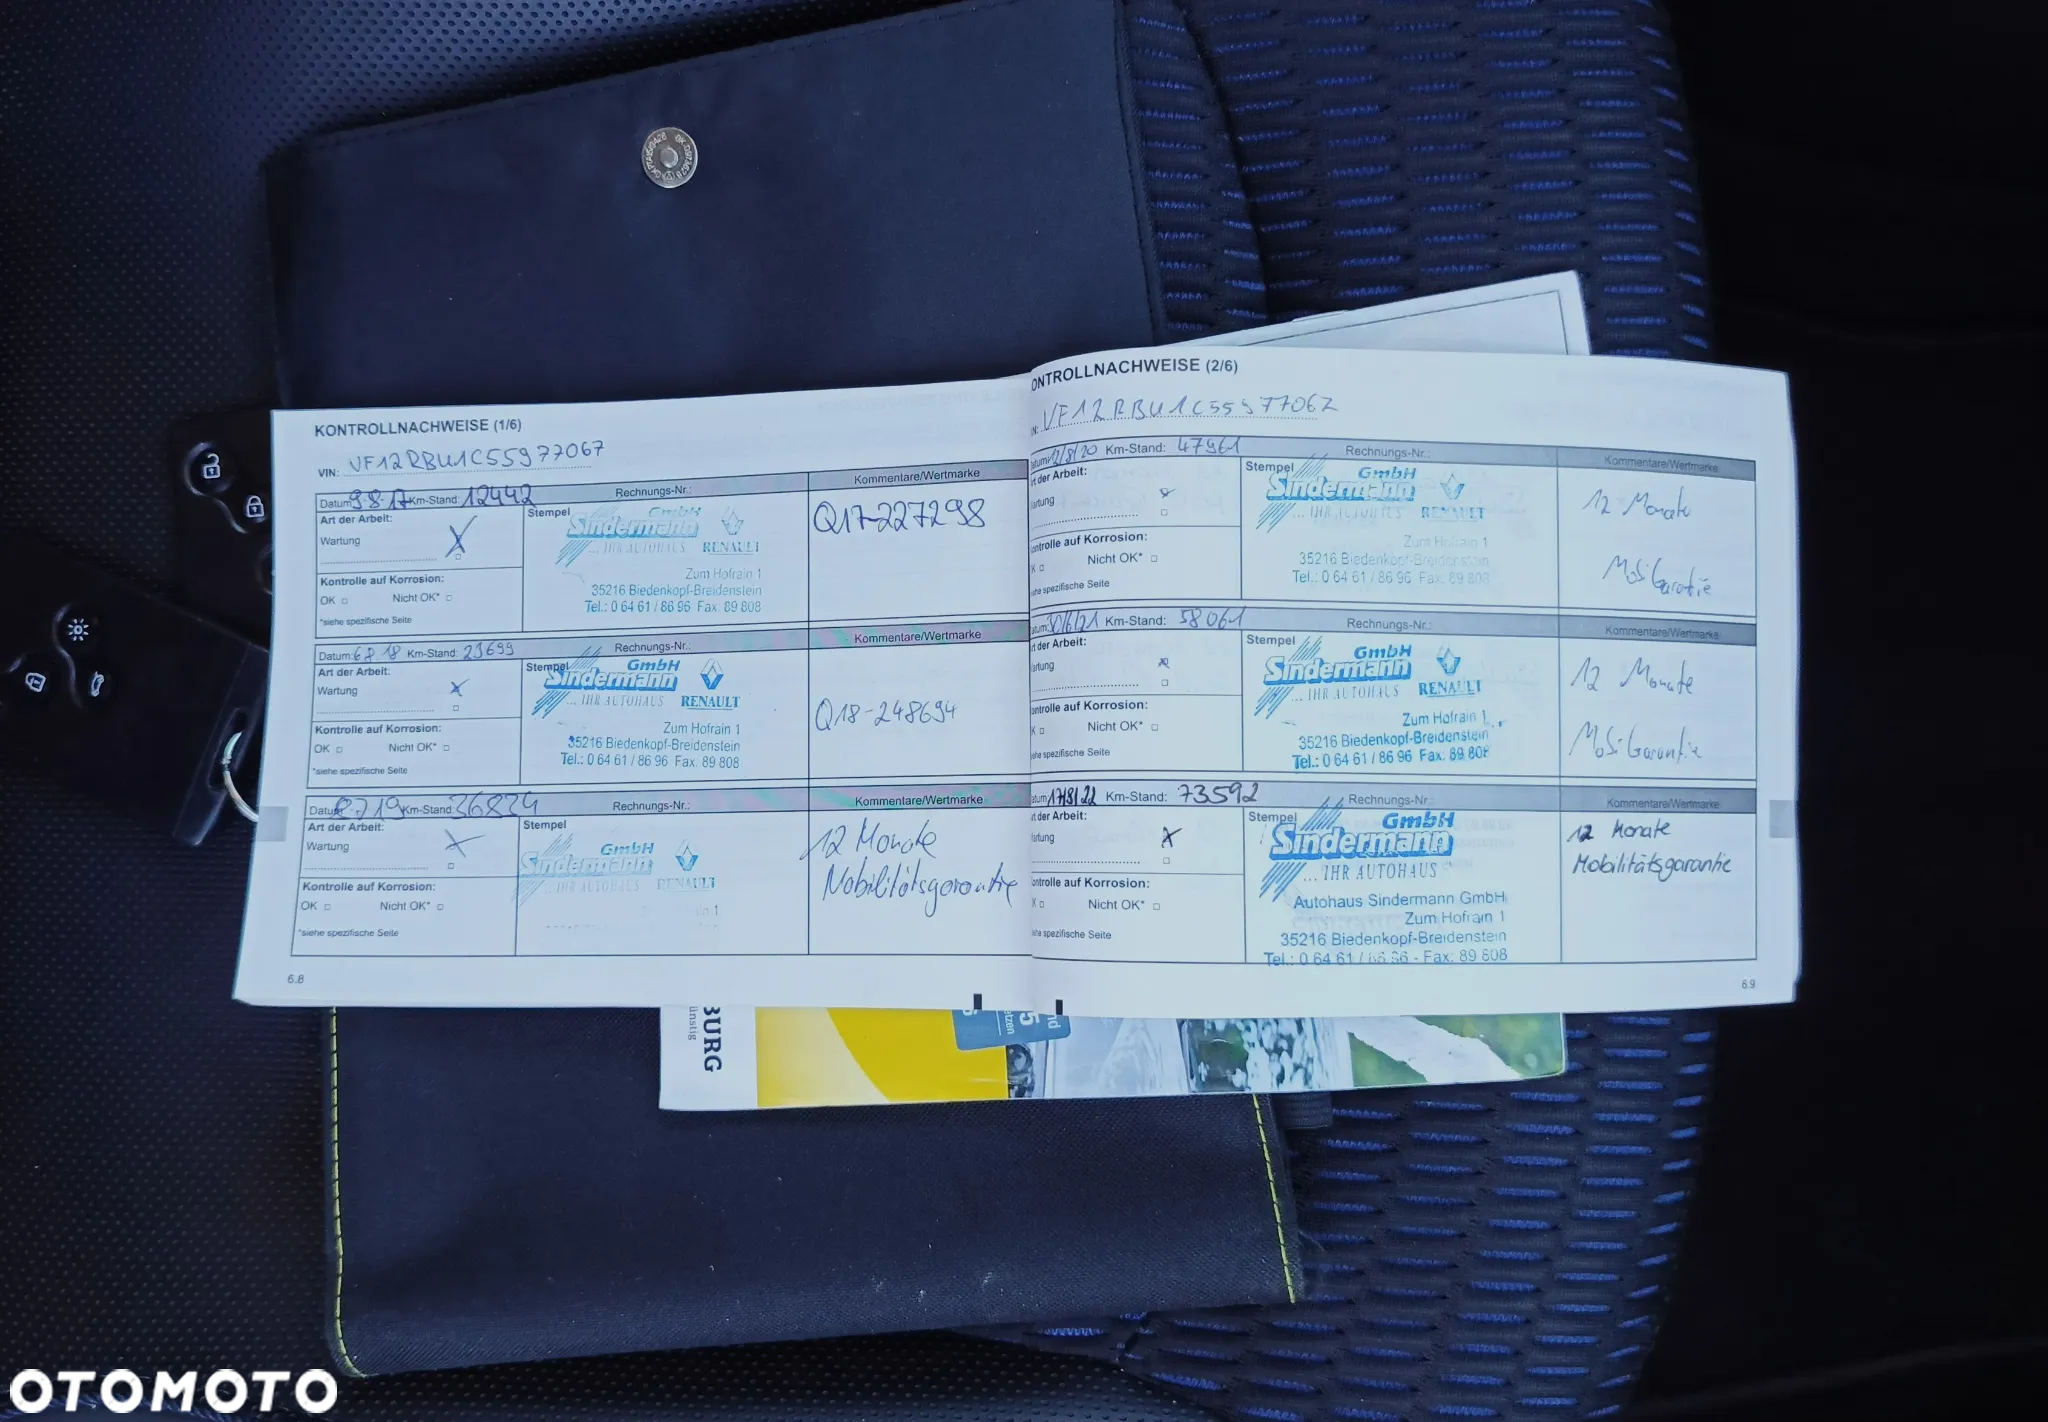 KONTROLLNACHWEISE (1/6)
VIN: VF12RBU1C55977067
Datum: 9.8.17 Km-Stand: 12442 Rechnungs-Nr.: Kommentare/Wertmarke
Art der Arbeit:
Wartung X
Kontrolle auf Korrosion:
OK Nicht OK*
*siehe spezifische Seite
Stempel
GmbH
Sindermann
... IHR AUTOHAUS RENAULT
Zum Hofrain 1
35216 Biedenkopf-Breidenstein
Tel.: 0 64 61 / 86 96 Fax: 89 808
Q17-227298
Datum: 6 8 18 Km-Stand: 23699 Rechnungs-Nr.: Kommentare/Wertmarke
Art der Arbeit:
Wartung X
Kontrolle auf Korrosion:
OK Nicht OK*
*siehe spezifische Seite
Stempel
GmbH
Sindermann
... IHR AUTOHAUS RENAULT
Zum Hofrain 1
35216 Biedenkopf-Breidenstein
Tel.: 0 64 61 / 86 96 Fax: 89 808
Q18-248694
Datum 8 7 19 Km-Stand: 36834 Rechnungs-Nr.: Kommentare/Wertmarke
Art der Arbeit:
Wartung X
Kontrolle auf Korrosion:
OK Nicht OK*
*siehe spezifische Seite
Stempel
GmbH
Sindermann
... IHR AUTOHAUS RENAULT
12 Monate
Mobilitätsgarantie
6.8
ONTROLLNACHWEISE (2/6)
N: VF12RBU1C55977067
atum: 12/8/20 Km-Stand: 47961 Rechnungs-Nr.: Kommentare/Wertmarke
rt der Arbeit:
artung X
ontrolle auf Korrosion:
K Nicht OK*
ehe spezifische Seite
Stempel
GmbH
Sindermann
... IHR AUTOHAUS RENAULT
Zum Hofrain 1
35216 Biedenkopf-Breidenstein
Tel.: 0 64 61 / 86 96 Fax: 89 808
12 Monate
atum: 30/6/21 Km-Stand: 58061 Rechnungs-Nr.: Kommentare/Wertmarke
rt der Arbeit:
artung X
ontrolle auf Korrosion:
K Nicht OK*
ehe spezifische Seite
Stempel
GmbH
Sindermann
... IHR AUTOHAUS RENAULT
Zum Hofrain 1
35216 Biedenkopf-Breidenstein
Tel.: 0 64 61 / 86 96 Fax: 89 808
12 Monate
atum: 17/8/22 Km-Stand: 73592 Rechnungs-Nr.: Kommentare/Wertmarke
rt der Arbeit:
artung X
ontrolle auf Korrosion:
K Nicht OK*
ehe spezifische Seite
Stempel
GmbH
Sindermann
... IHR AUTOHAUS
Autohaus Sindermann GmbH
Zum Hofrain 1
35216 Biedenkopf-Breidenstein
Tel.: 0 64 61 / 86 96 - Fax: 89 808
12 Monate
Mobilitätsgarantie
6.9
BURG
OTOMOTO